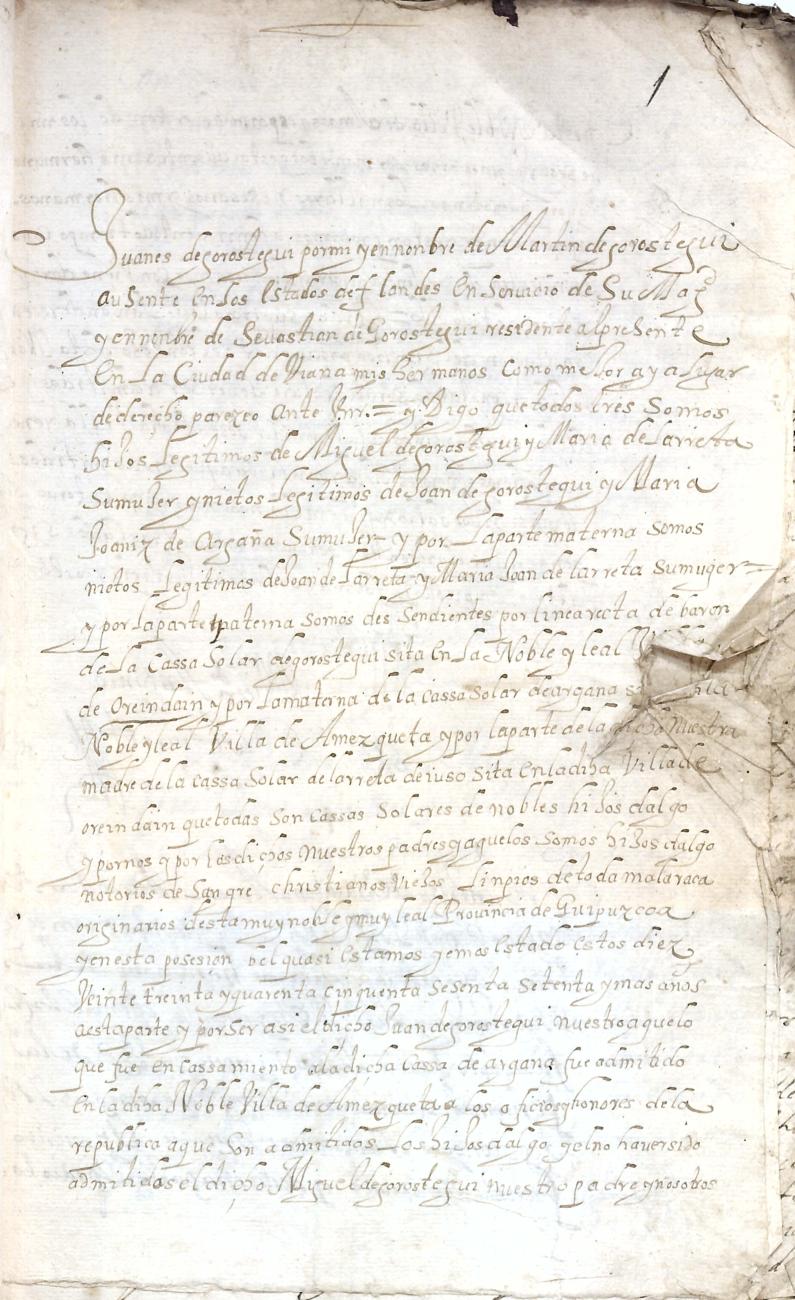 1
Juanes degorostegui pormi yennonbre de Martin degorostegui
ausente en los estados deflandes en servicio de Su Magd
yennonbre de Sevastian de Gorostegui residente alpresente
En La Ciudad de Viana mis hermanos como mejor aya lugar
dederecho parezco Ante Vmr.= y Digo quetodos tres Somos
hijos Legitimos de Miguel degorostegui y Maria de Larreta
Sumujer ynietos Legitimos deJoan degorostegui y Maria
Joaniz de Argaña Sumujer= y por Laparte materna somos
nietos Legitimos deJoande Larreta y Maria Joan de larreta sumuger=
y por Laparte paterna somos desSendientes por linearecta de baron
de La Cassa Solar degorostegui sita en La Noble y leal
de Oreindain y por Lamaterna de la cassa solar deargana
Noble yleal Villa de Amezqueta ypor laparte dela dicha Nuestra
madre de la cassa solar delarreta deiuso sita enladiha Villa de
oreindain quetodas son cassas solares denobles hijos dalgo
ypornos y por Losdichos nuestros padres yaguelos somos hijos dalgo
notorios de Sangre christianos viejos linpios detoda malaraca
originarios destamuynoble ymuyleal Provincia de Guipuzcoa
yenesta posesion velquasi estamos yemos estado estos diez
Veinte treinta yquarenta cinquenta sesenta setenta ymas años
aestaparte y porser asi eldicho Juan degorostegui nuestroaguelo
que fue en cassamiento aladicha cassa de argana fue admitido
enladiha Noble Villa de Amezqueta a los oficiosyhonores dela
republica aque son admitidos Los hijos dalgo yelno haversido
admitidos el dicho Miguel degorostegui nuestro padre ynosotros